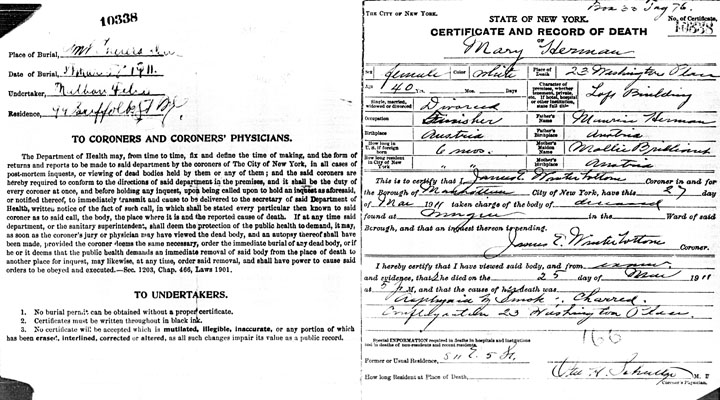 10338
Place of Burial,
Date of Burial, 1911.
Undertaker, Nathan
Residence, Suffolk St NY.
TO CORONERS AND CORONERS' PHYSICIANS.
The Department of Health may, from time to time, fix and define the time of making, and the form of
returns and reports to be made to said department by the coroners of The City of New York, in all cases of
post-mortem inquests, or viewing of dead bodies held by them or any of them; and the said coroners are
hereby required to conform to the directions of said department in the premises, and it shall be the duty of
every coroner at once, and before holding any inquest, upon being called upon to hold an inquest as aforesaid,
or notified thereof, to immediately transmit and cause to be delivered to the secretary of said Department of
Health, written notice of the fact of such call, in which shall be stated every particular then known to said
coroner as to said call, the body, the place where it is and the reported cause of death. If at any time said
department, or the sanitary superintendent, shall deem the protection of the public health to demand, it may,
as soon as the coroner's jury or physician may have viewed the dead body, and an autopsy thereof shall have
been made, provided the coroner deems the same necessary, order the immediate burial of any dead body, or if
he or it deems that the public health demands an immediate removal of said body from the place of death to
another place for inquest, may likewise, at any time, order said removal, and shall have power to cause said
orders to be obeyed and executed.—Sec. 1203, Chap. 466, Laws 1901.
TO UNDERTAKERS.
1. No burial permit can be obtained without a proper certificate.
2. Certificates must be written throughout in black ink.
3. No certificate will be accepted which is mutilated, illegible, inaccurate, or any portion of which
has been erased, interlined, corrected or altered, as all such changes impair its value as a public record.
THE CITY OF NEW YORK.
STATE OF NEW YORK.
No. of Certificate,
10338
CERTIFICATE AND RECORD OF DEATH
OF
Mary Herman
Sex female Color white Place of Death 23 Washington Place
Age 40 Yrs. Mos. Days. Character of premises, whether tenement, private, etc. If hotel, hospital or other institution, state full title Loft Building
Single, married, widowed or divorced Divorced
Occupation Finisher Father's Name Maurice Herman
Birthplace Austria Father's Birthplace Austria
How long in U.S. if foreign born 6 mos. Mother's Maiden Name Mollie
How long resident in City of New York Mother's Birthplace Austria
This is to certify that I James E. Winterbottom Coroner in and for
the Borough of Manhattan City of New York, have this 27 day
of Mar 1911 taken charge of the body of deceased
found at morgue in the Ward of said
Borough, and that an inquest thereon is pending.
James E. Winterbottom Coroner.
I hereby certify that I have viewed said body, and from
and evidence, that she died on the 25 day of Mar 1911
at 5 P M, and that the cause of her death was:
Asphyxia by Smoke: Charred.
23 Washington Place
166
Special INFORMATION required in deaths in hospitals and institutions and in deaths of non-residents and recent residents.
Former or Usual Residence,
How long Resident at Place of Death, M. D
Coroner's Physician.